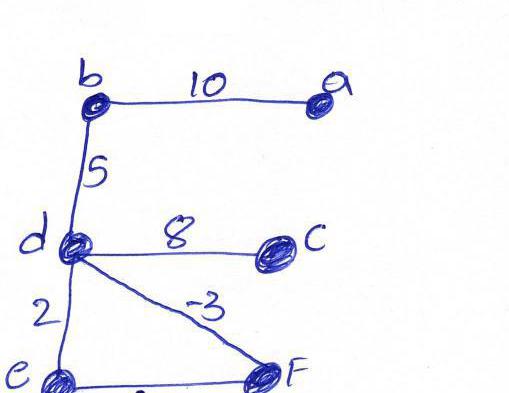 b 10 a
5
d 8 c
2 -3
e F